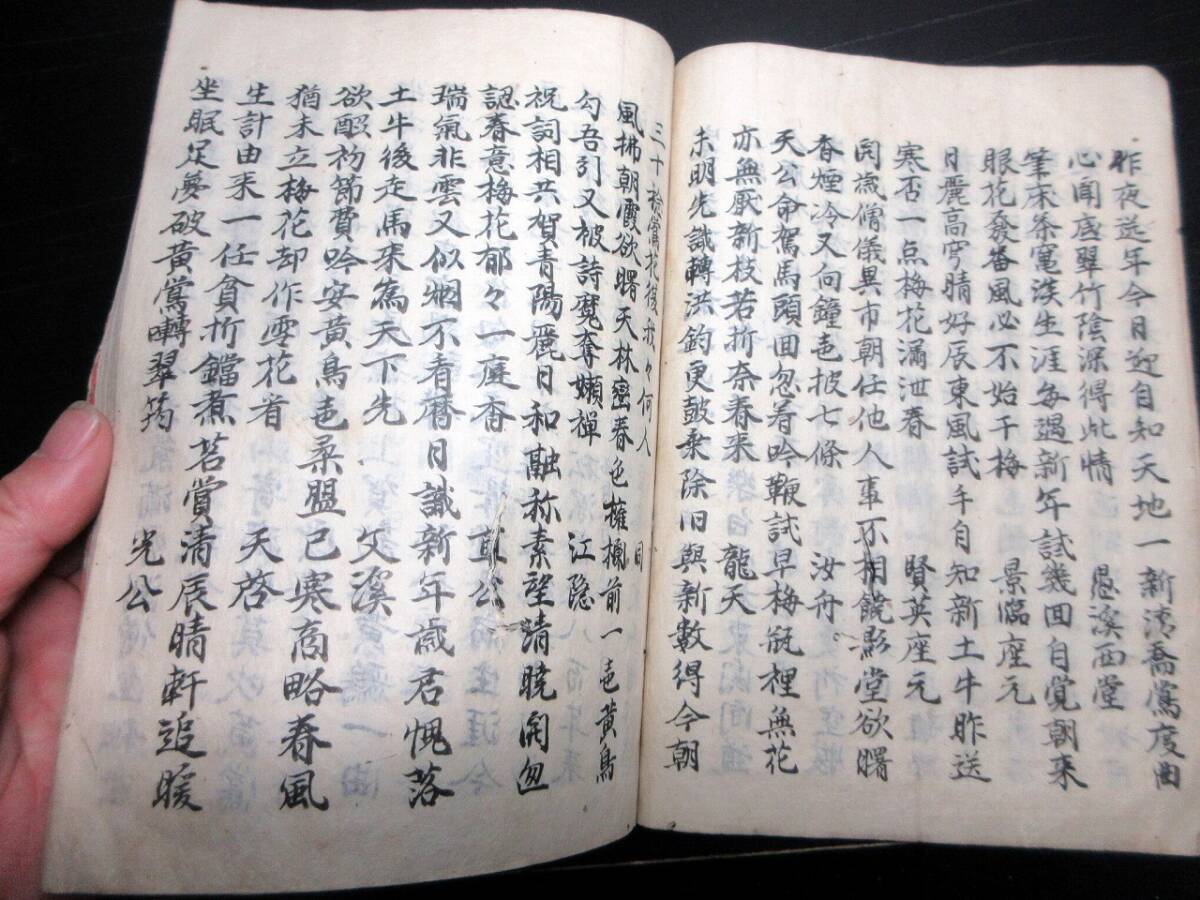 昨夜送年今日迎自知天地一新清喬鶯度曲
心閑底翠竹陰深得此情　愚溪西堂
筆床茶竃淡生涯每遇新年試幾回自覚朝来
眼花發番風必不始于梅　景臨座元
日麗高穹晴好辰東風試手自知新土牛昨送
寒否一点梅花漏泄春　賢英座元
閑歳僧儀異市朝任他人事不相饒影堂欲曙
春煙冷又向鐘邑披七條　汝舟
天公命駕馬頭回忽看吟鞭試早梅瓶裡無花
亦無厭新枝若折奈春来　龍天
未明先識轉洪鈞更鼓未除旧與新數得今朝
三十　花後　々何人　同
風拂朝霞欲曙天林密春色擁欄前一邑黄鳥
勾吾引又被詩魔奪嬾禅　江隐
祝詞相共賀青陽麗日和融称素望清曉開迎
認春意梅花郁々一庭香　公
瑞氣非雲又似烟不看暦日識新年歳君愧落
土牛後走馬来為天下先　文溪
欲酘初節費吟安黄鳥邑柔盟已寒商略春風
猶未立梅花却作雪花看　天啓
生計由来一任貧折鐺煮茗賞清辰晴軒追暖
坐眠足夢破黄鶯囀翠筠　光公